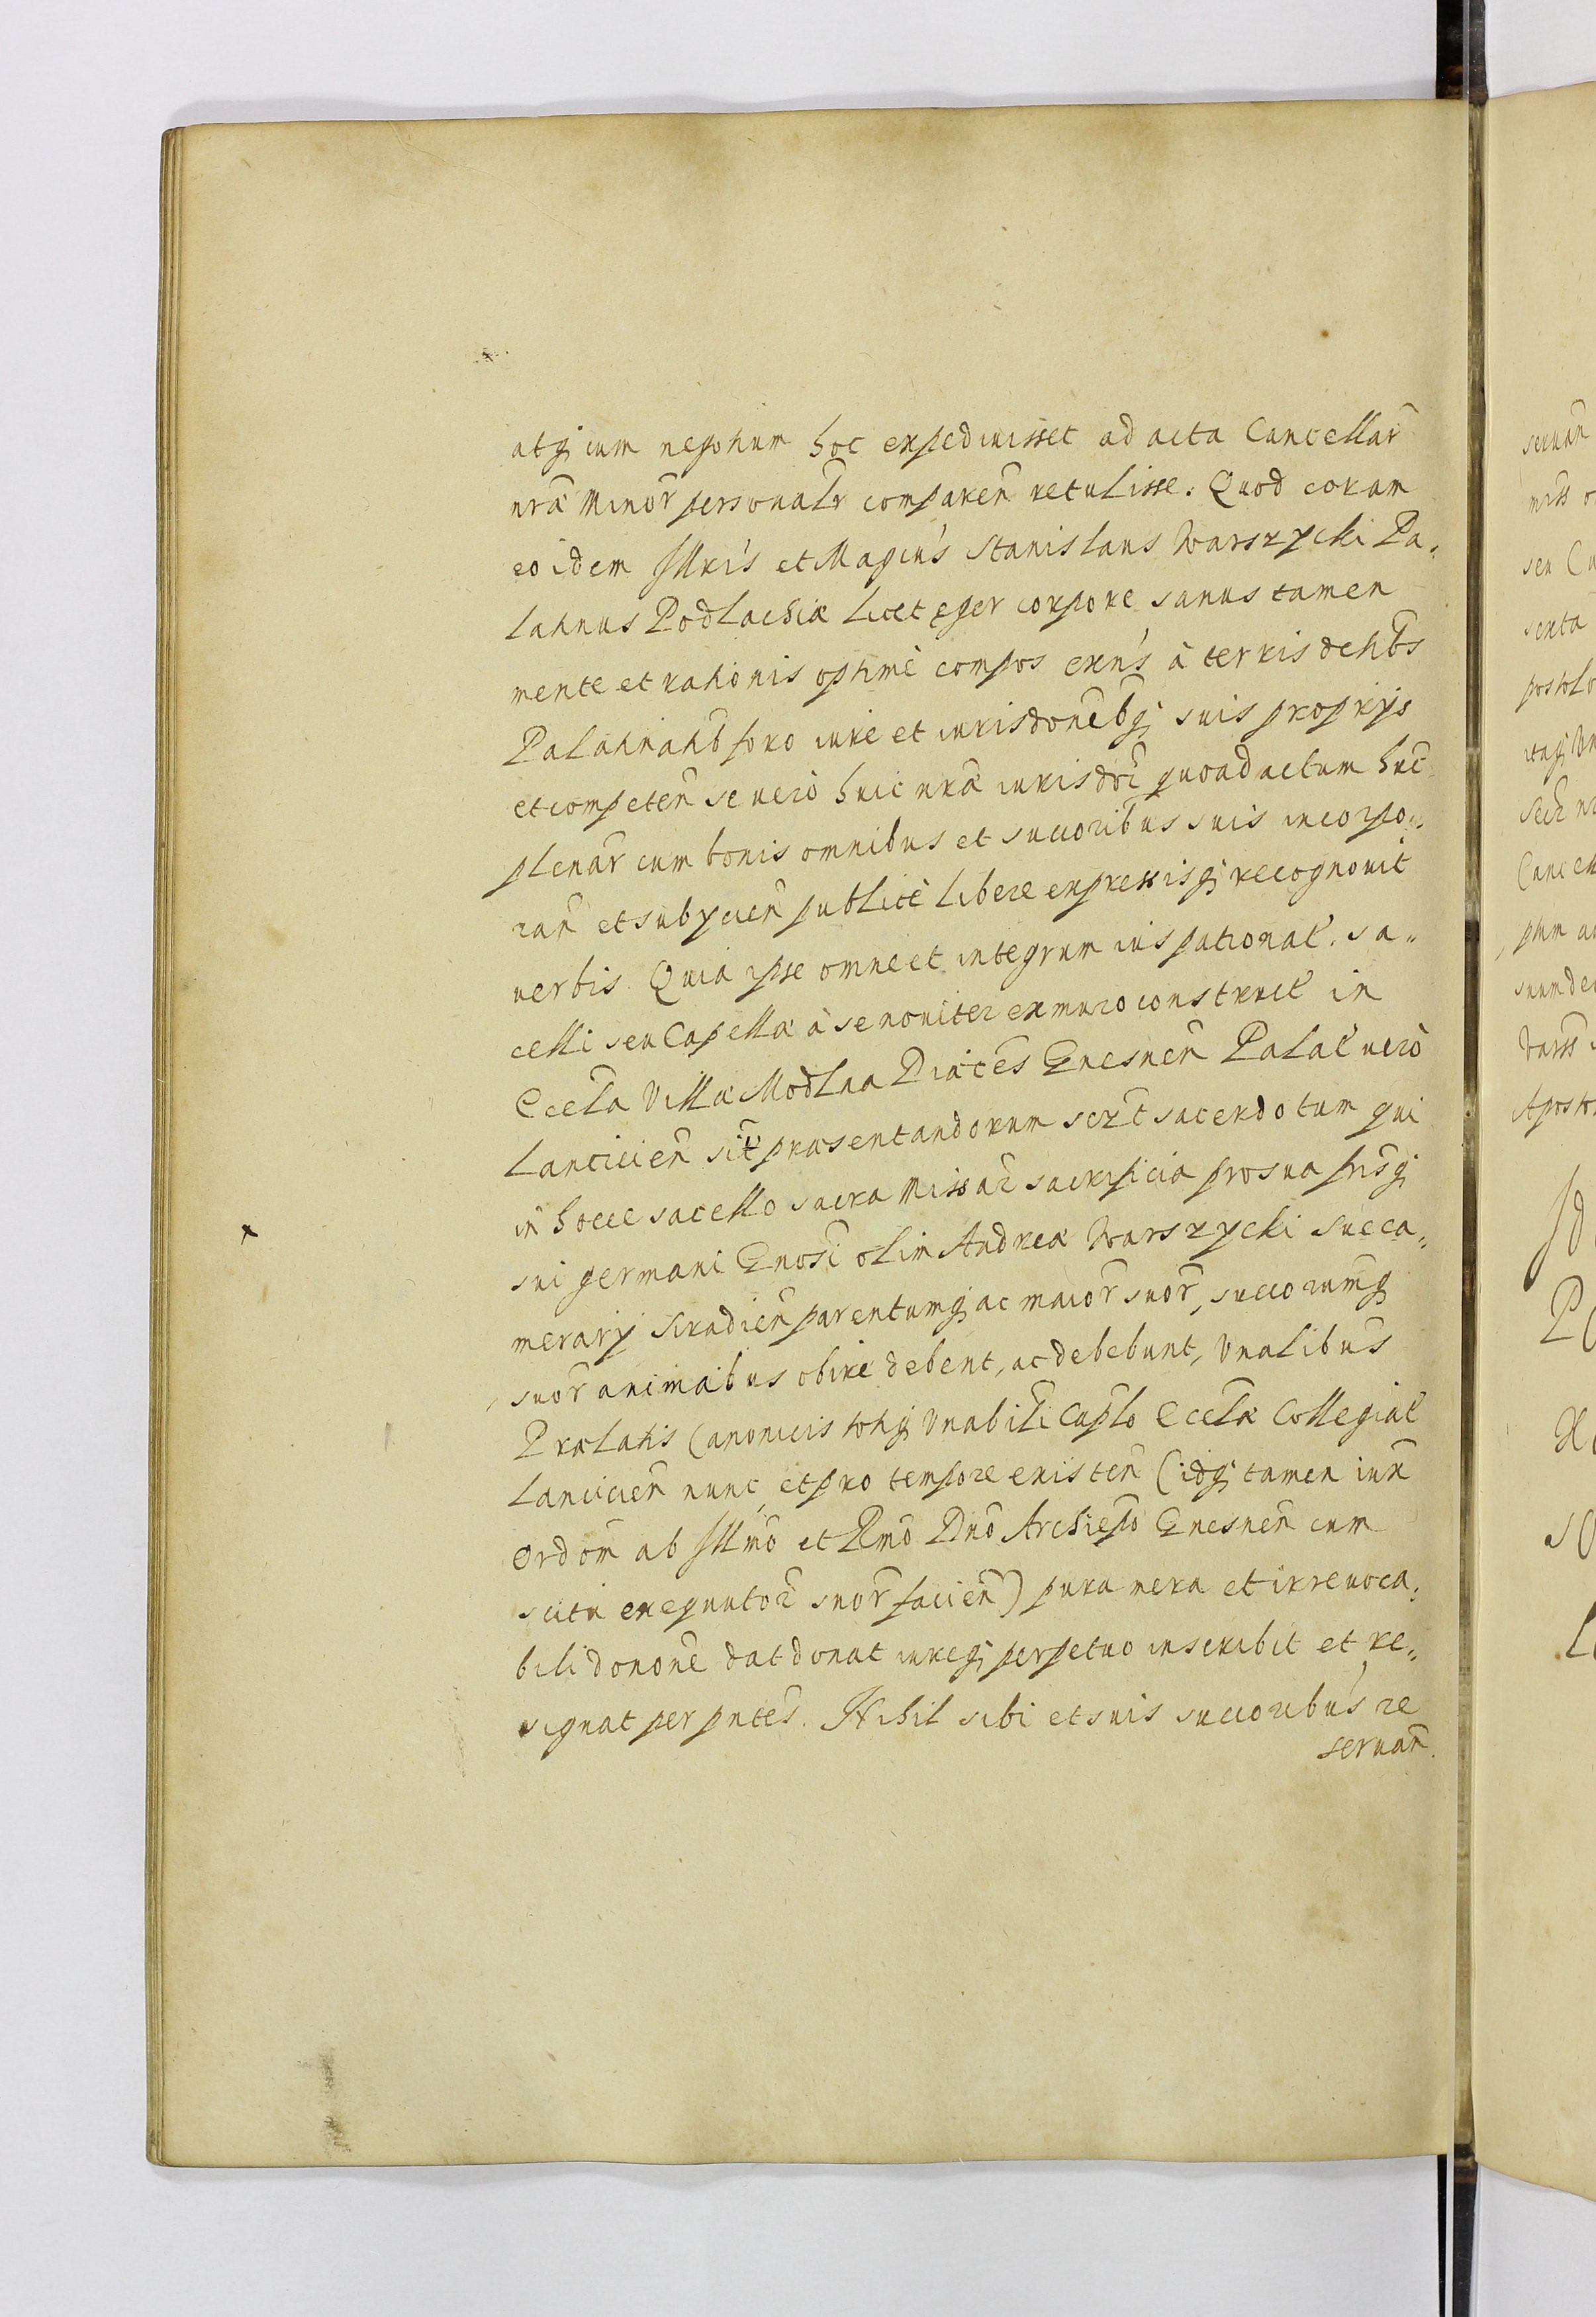 atq; cum negotium hoc expediuisset ad acta Cancellar̃
nrã Minor̃ personalr̃ comparen̄ retulisse. Quod coram
eo idem Illris et Magcus Stanislaus Warszycki Pa„
latinus Podlachiæ licet ęger corpore sanus tamen
mente et rationis optimè compos exñs à terris dehbs
Palatinatib̃ foro iure et iurisdoneb̃q; suis proprijs
et competen̄ se uerò huic nrã iurisdõi quoad actum hũc
plenar̃ cum bonis omnibus et succoribus suis incorpo„
ran̄ et subycien̄ publicè libere expressisq; recognouit
uerbis. Quia ipse omne et integrum ius patronat̃. sa„
celli seu Capellæ à se nouiter ex muro construct̃ in
Eccla Villæ Modlna Diæces̃ Gnesnen̄ Palat̃ uerò
Lancicien̄ sit̃ præsentandorum scz̃t sacerdotum qui
in hocce sacello sacra Missar̃ sacrificia pro sua frisq;
sui germani Gnosi olim Andreæ Warszycki Succa„
merarij Siradien̄ parentumq; ac maior̃ suor̃, succorumq;
suor̃ animabus obire debent, ac debebunt, Vnalibus
Prælatis Canonicis totiq; Vnabili Caplo Ecclæ Collegiat̃
Lancicien̄ nunc et pro tempore existen̄ (idq; tamen iux̃
Ordõm ab Illmo et Rmo Dno Archiepo Gnesnen̄ cum
scitu exequutor̃ suor̃ facien̄) pura mera et irreuoca„
bili donone dat donat iureq; perpetuo inscribit et re„
signat per pñtes. Nihil sibi et suis succoribus re
seruan̄.
seruan̄
miss
seu
senta
postolo
itaq;
Cancell
suum
Aposto